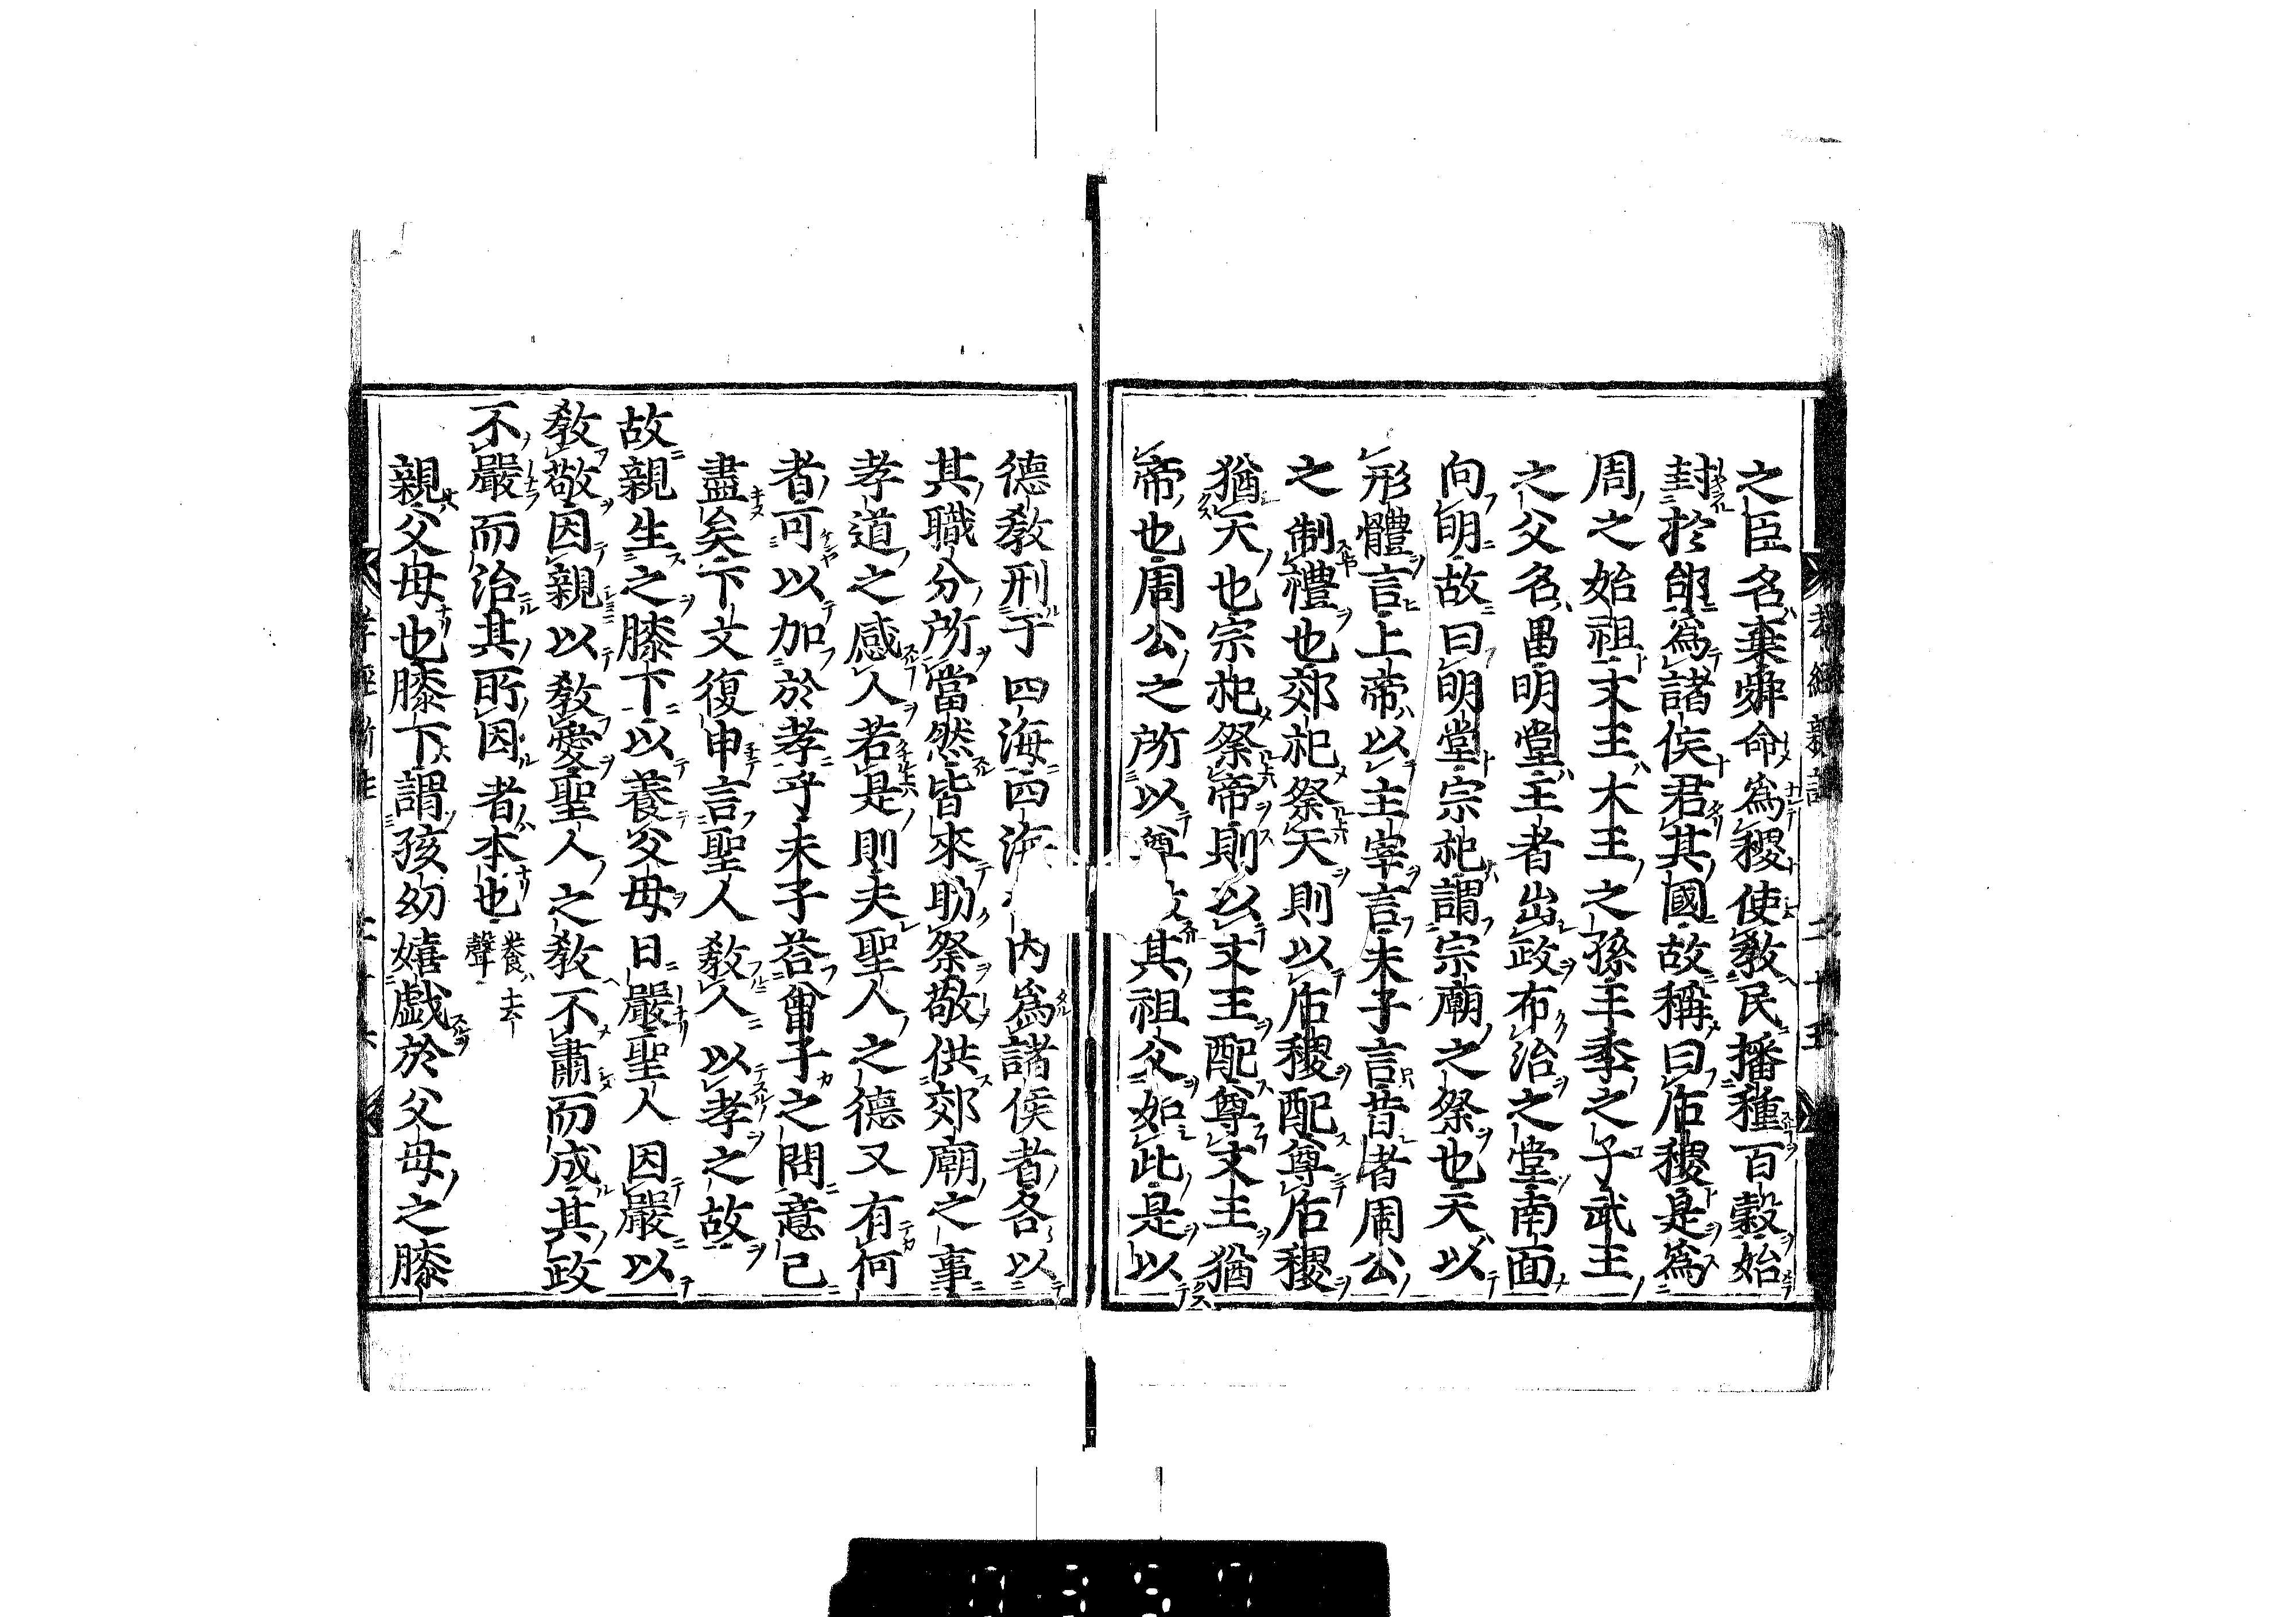 之臣名棄舜命爲稷使敎民播種百穀始
封於邰爲諸侯君其國故稱曰后稷是爲
周之始祖文王大王之孫王季之子武王
之父名昌明堂王者出政布治之堂南面
向明故曰明堂宗祀謂宗廟之祭也天以
形體言上帝以主宰言朱子言昔者周公
之制禮也郊祀祭天則以后稷配尊后稷
猶天也宗祀祭帝則以文王配尊文王猶
帝也周公之所以尊其祖父如此是以
德敎刑于四海四海内爲諸侯者各以
其職分所當然皆來助祭敬供郊廟之事
孝道之感人若是則夫聖人之德又有何
者可以加於孝乎夫子荅曾子之問意已
盡矣下文復申言聖人敎人以孝之故
故親生之膝下以養父母日嚴聖人因嚴以
敎敬因親以敎愛聖人之敎不肅而成其政
不嚴而治其所因者本也 養去聲
親父母也膝下謂孩幼嬉戯於父母之膝